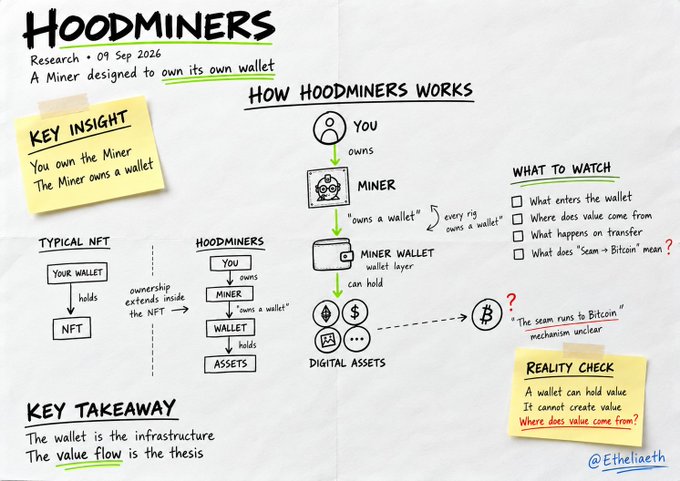 HOODMINERS
Research • 09 Sep 2026
A Miner designed to own its own wallet
KEY INSIGHT
You own the Miner
The Miner owns a wallet
HOW HOODMINERS WORKS
YOU
owns
MINER
"owns a wallet"
every rig
owns a wallet"
MINER WALLET
wallet layer
can hold
$
DIGITAL ASSETS
₿
?
"The seam runs to Bitcoin"
mechanism unclear
TYPICAL NFT
YOUR WALLET
holds
NFT
ownership
extends inside
the NFT →
HOODMINERS
YOU
owns
MINER
"owns a wallet"
WALLET
holds
ASSETS
WHAT TO WATCH
What enters the wallet
Where does value come from
What happens on transfer
What does "Seam → Bitcoin" mean ?
REALITY CHECK
A wallet can hold value
It cannot create value
Where does value come from?
KEY TAKEAWAY
The wallet is the infrastructure
The value flow is the thesis
@Etheliaeth